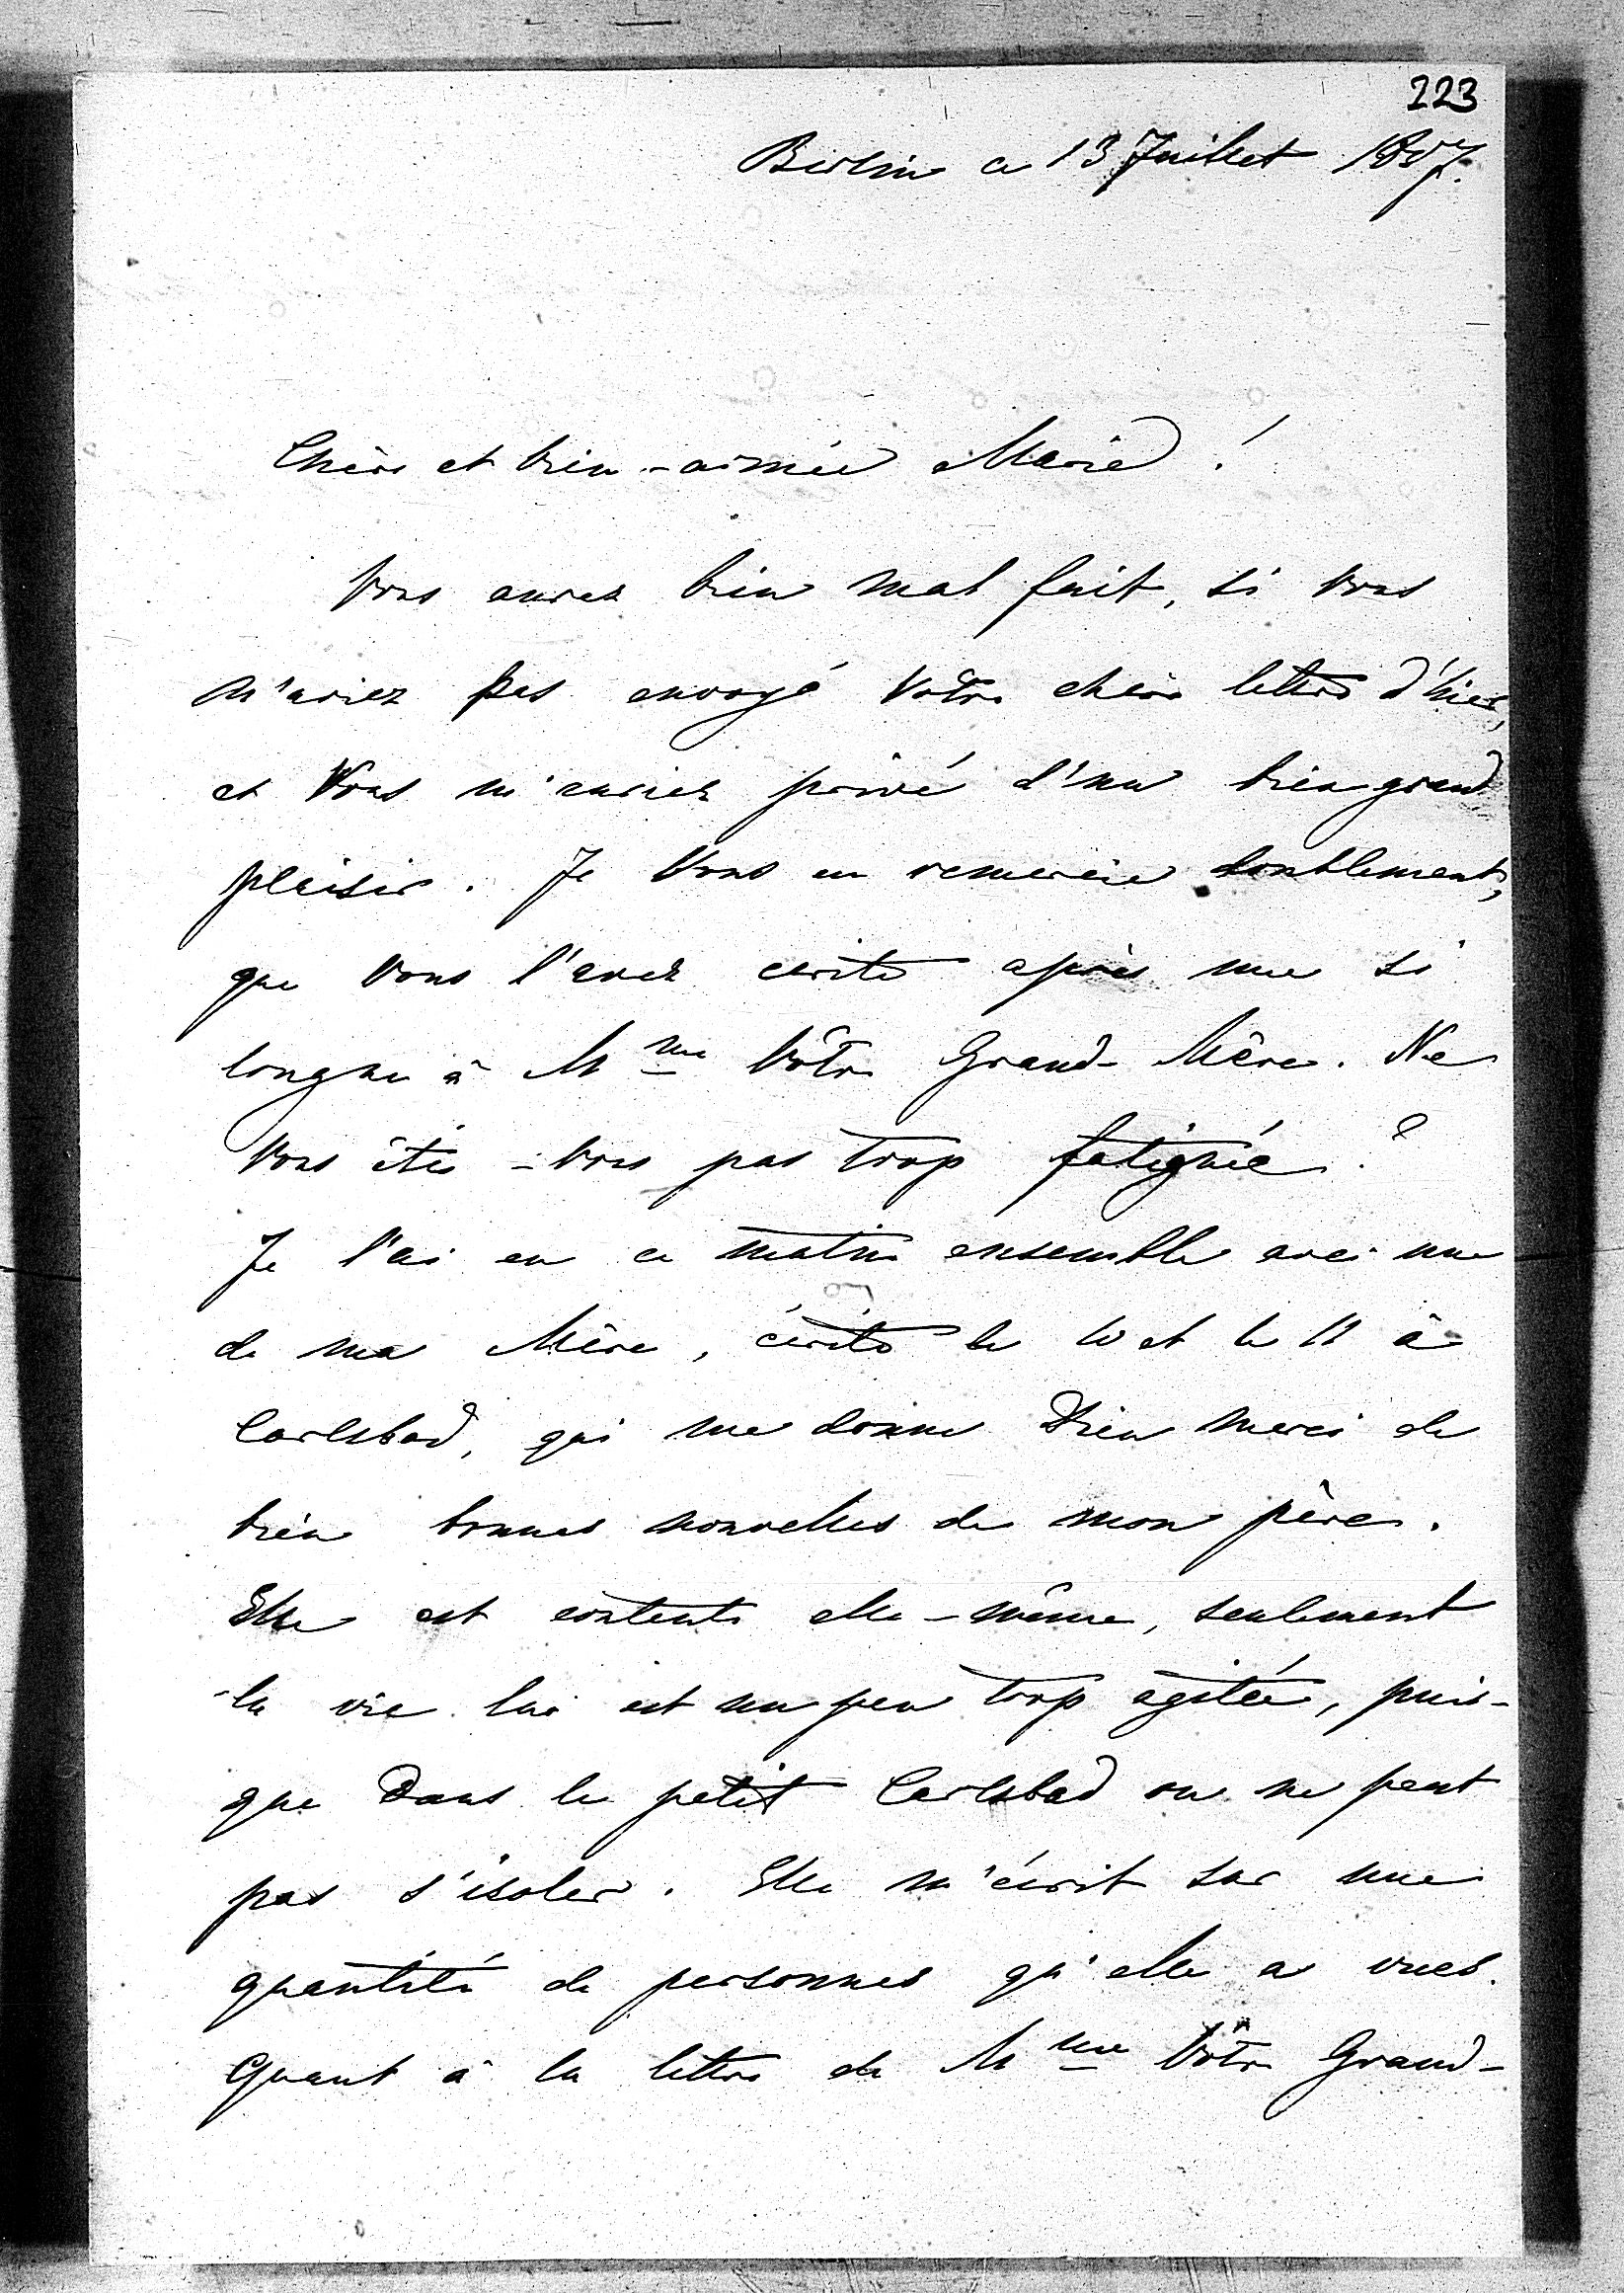 223
Berlin ce 13 Juillet 1857.
Chère et bien-aimée Marie!
Vous auriez bien mal fait, si Vous
m'aviez pas envoyé Votre chère lettre d'hier,
et Vous m'auriez privé d'un bien grand
plaisir. Je Vous en remercie doublement,
que Vous l'avez ecrite après une si
longue à Mme Vôtre Grand-Mère. Ne
Vous êtes-Vous pas trop fatiguée?
Je l'ai eu ce matin ensemble avec une
de ma Mère, écrite le 10 et le 11 à
Carlsbad, qui me donne Dieu merci de
bien bonnes nouvelles de mon père.
Elle est contente elle-même, seulement
la vie lui est un peu trop agitée, puis-
que dans le petit Carlsbad on ne peut
pas s'isoler. Elle m'écrit sur une
quantité de personnes qu'elle a vues.
Quant à la lettre de Mme Vôtre Grand-